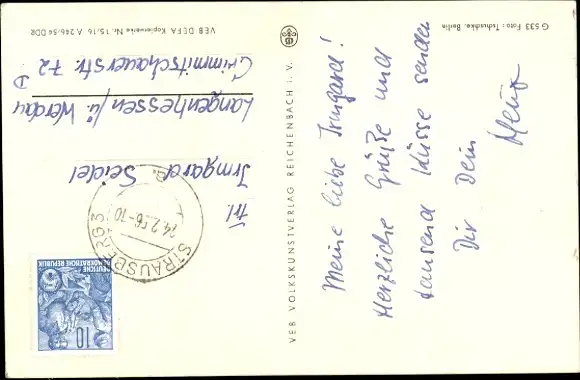 Meine liebe Irmgard!
Herzliche Grüße und
tausend Küsse sendet
Dir Dein
Frl
Irmgard Seidel
Langenhessen/ü. Werdau
Crimmitschauerstr. 72
D
STRAUSBERG 3
24.2.56-10
e
DEUTSCHE
DEMOKRATISCHE REPUBLIK
10
G 533 Foto: Tschuschke, Berlin
VEB VOLKSKUNSTVERLAG REICHENBACH i. V.
VEB DEFA Kopierwerke Nr. 15/16 A 246/54 DDR